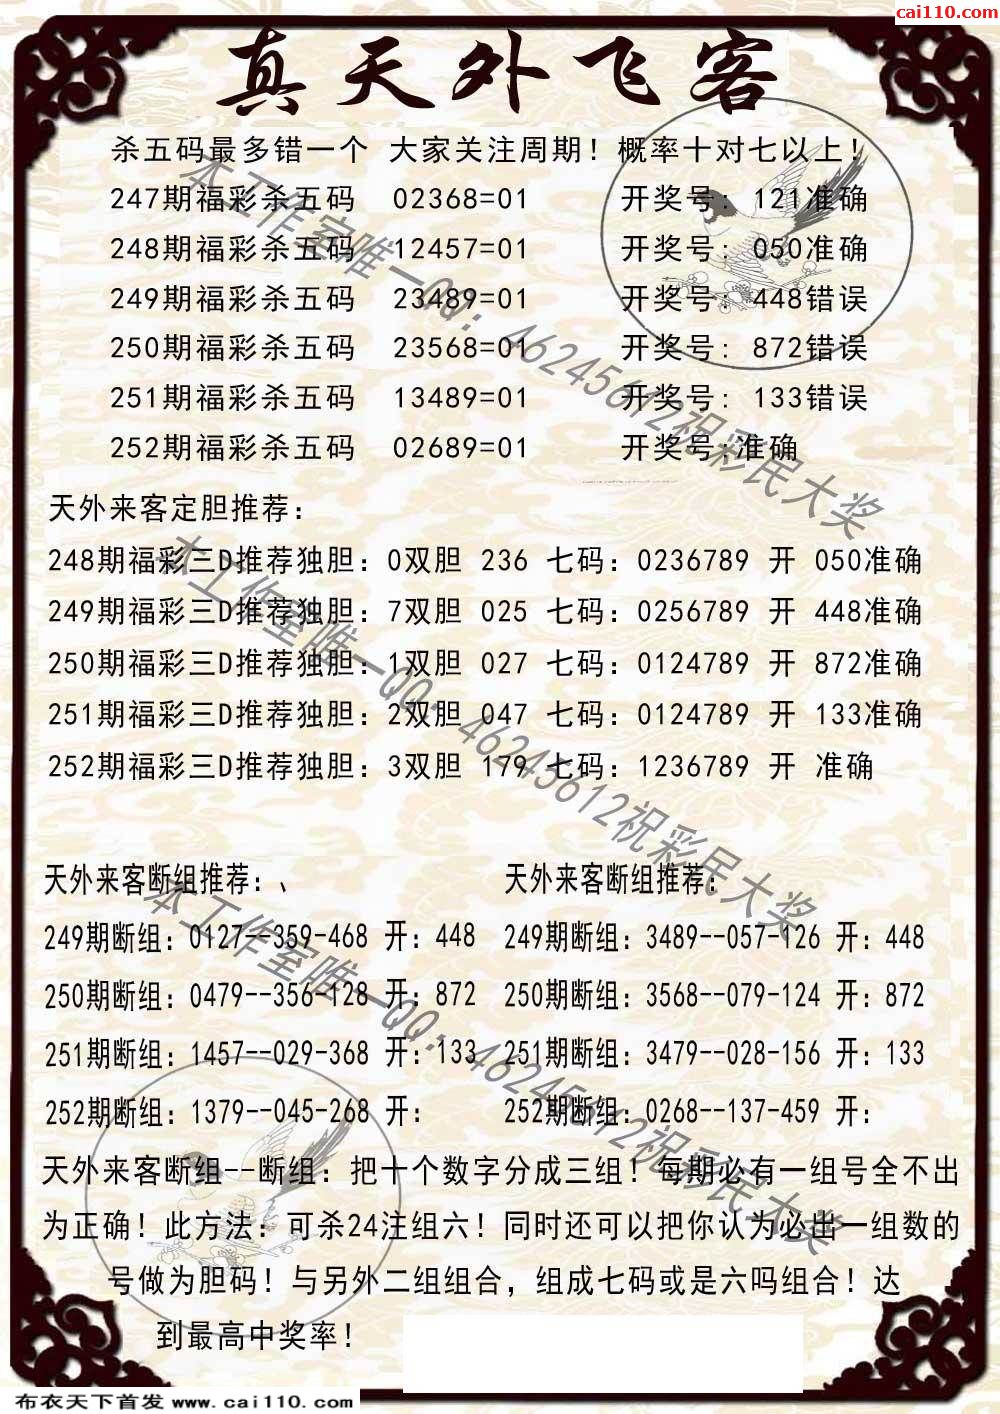 cai110.com
真天外飞客
杀五码最多错一个 大家关注周期！概率十对七以上！
247期福彩杀五码 02368=01 开奖号：121准确
248期福彩杀五码 12457=01 开奖号：050准确
249期福彩杀五码 23489=01 开奖号：448错误
250期福彩杀五码 23568=01 开奖号：872错误
251期福彩杀五码 13489=01 开奖号：133错误
252期福彩杀五码 02689=01 开奖号:准确
本工作室唯一QQ：46245612祝彩民大奖
天外来客定胆推荐：
248期福彩三D推荐独胆：0双胆 236 七码：0236789 开 050准确
249期福彩三D推荐独胆：7双胆 025 七码：0256789 开 448准确
250期福彩三D推荐独胆：1双胆 027 七码：0124789 开 872准确
251期福彩三D推荐独胆：2双胆 047 七码：0124789 开 133准确
252期福彩三D推荐独胆：3双胆 179 七码：1236789 开 准确
本工作室唯一QQ：46245612祝彩民大奖
天外来客断组推荐：、
249期断组：0127--359-468 开：448
250期断组：0479--356-128 开：872
251期断组：1457--029-368 开：133
252期断组：1379--045-268 开：
天外来客断组推荐：
249期断组：3489--057-126 开：448
250期断组：3568--079-124 开：872
251期断组：3479--028-156 开：133
252期断组：0268--137-459 开：
本工作室唯一QQ：46245612祝彩民大奖
天外来客断组--断组：把十个数字分成三组！每期必有一组号全不出
为正确！此方法：可杀24注组六！同时还可以把你认为必出一组数的
号做为胆码！与另外二组组合，组成七码或是六吗组合！达
到最高中奖率！
布衣天下首发 www.cai110.com